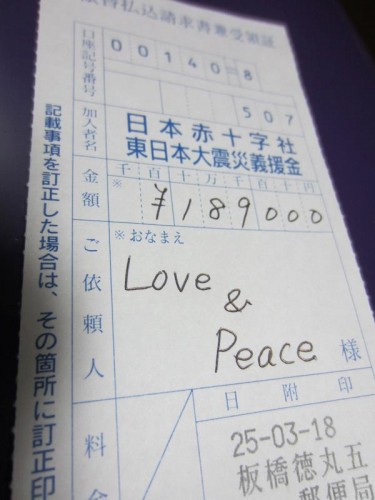 振替払込請求書兼受領証
口座記号番号
00140=8
507
加入者名
日本赤十字社
東日本大震災義援金
金額
千百十万千百十円
※
¥189000
ご依頼人
※おなまえ
Love
&
Peace
様
料金
日附印
25-03-18
板橋徳丸五
郵便局
記載事項を訂正した場合は、その箇所に訂正印